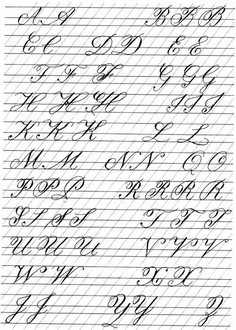 A A B B B
C C D D E E
F F F G G G
H H H H I I I
K K K L L
M M N N Q Q
P P P R R R R
S S S S T T T
U U U U V V V V
W W X X
J J Y Y Z